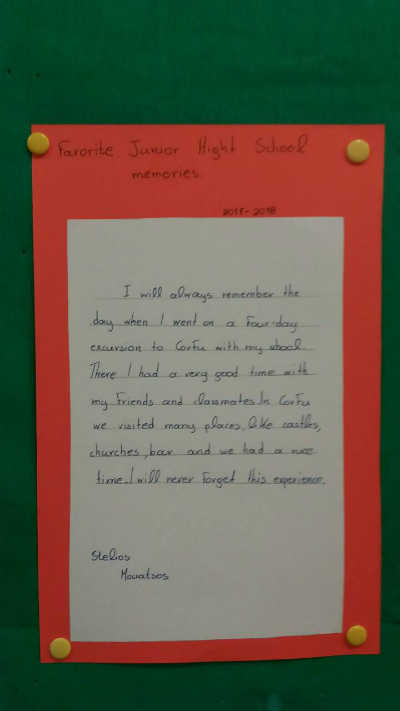 Favorite Junior Hight School
memories.
2017-2018
I will always remember the
day when I went on a four-day
excursion to Corfu with my school.
There I had a very good time with
my friends and classmates. In Corfu
we visited many places, like castles,
churches, bar and we had a nice
time. I will never forget this experience.
Stelios